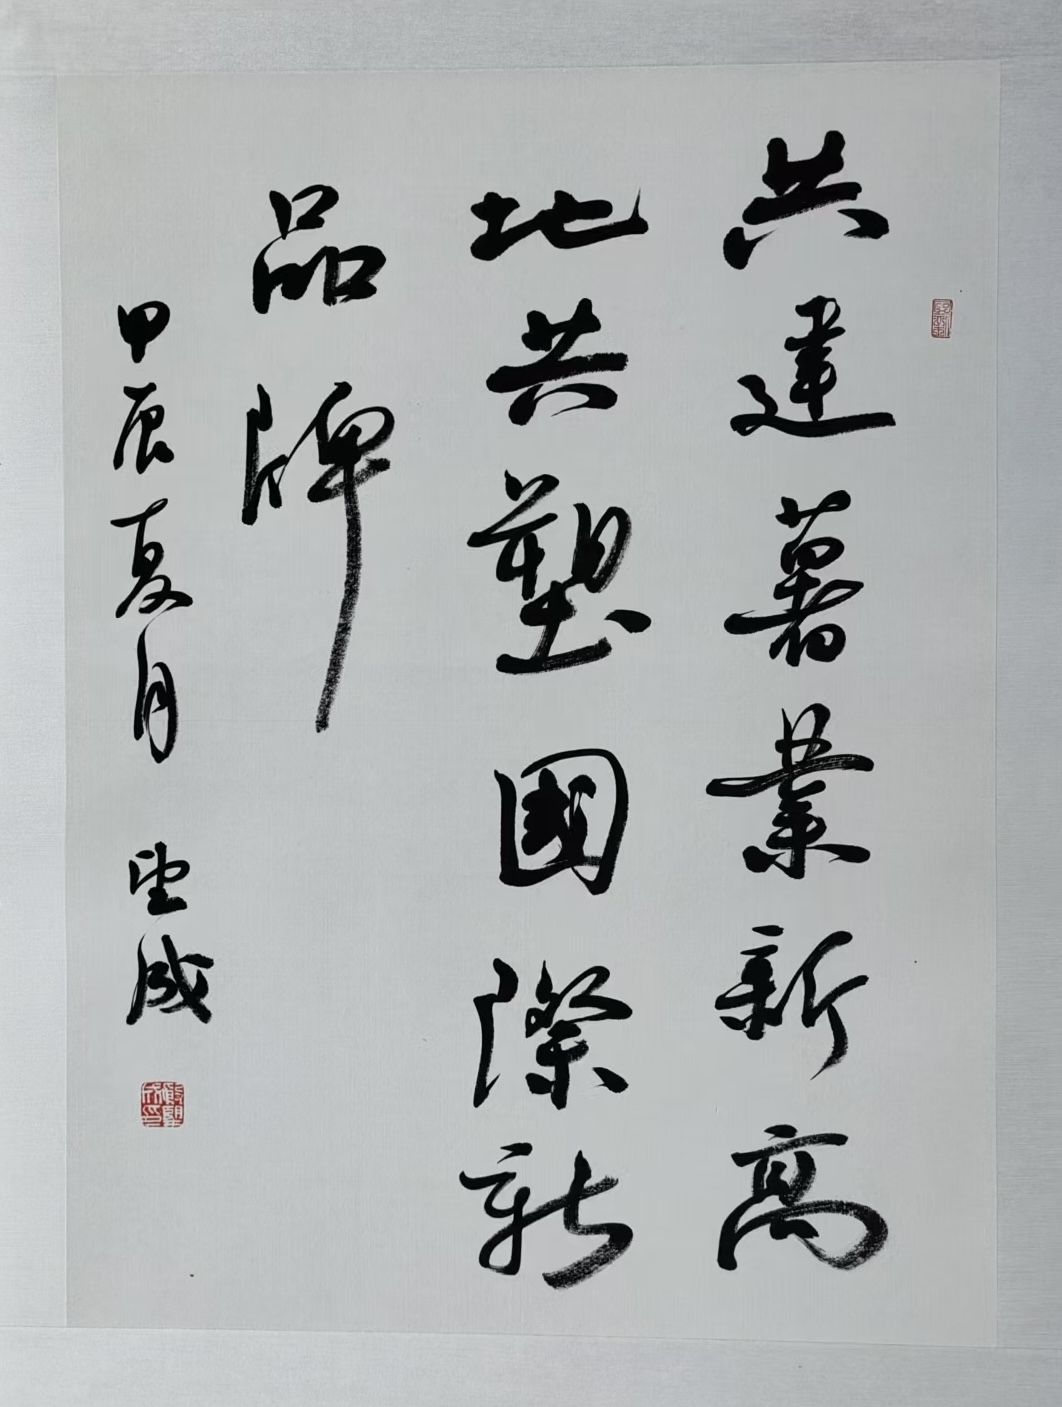 共建薯業新高
地共塑國際新
品牌
甲辰夏月 望成